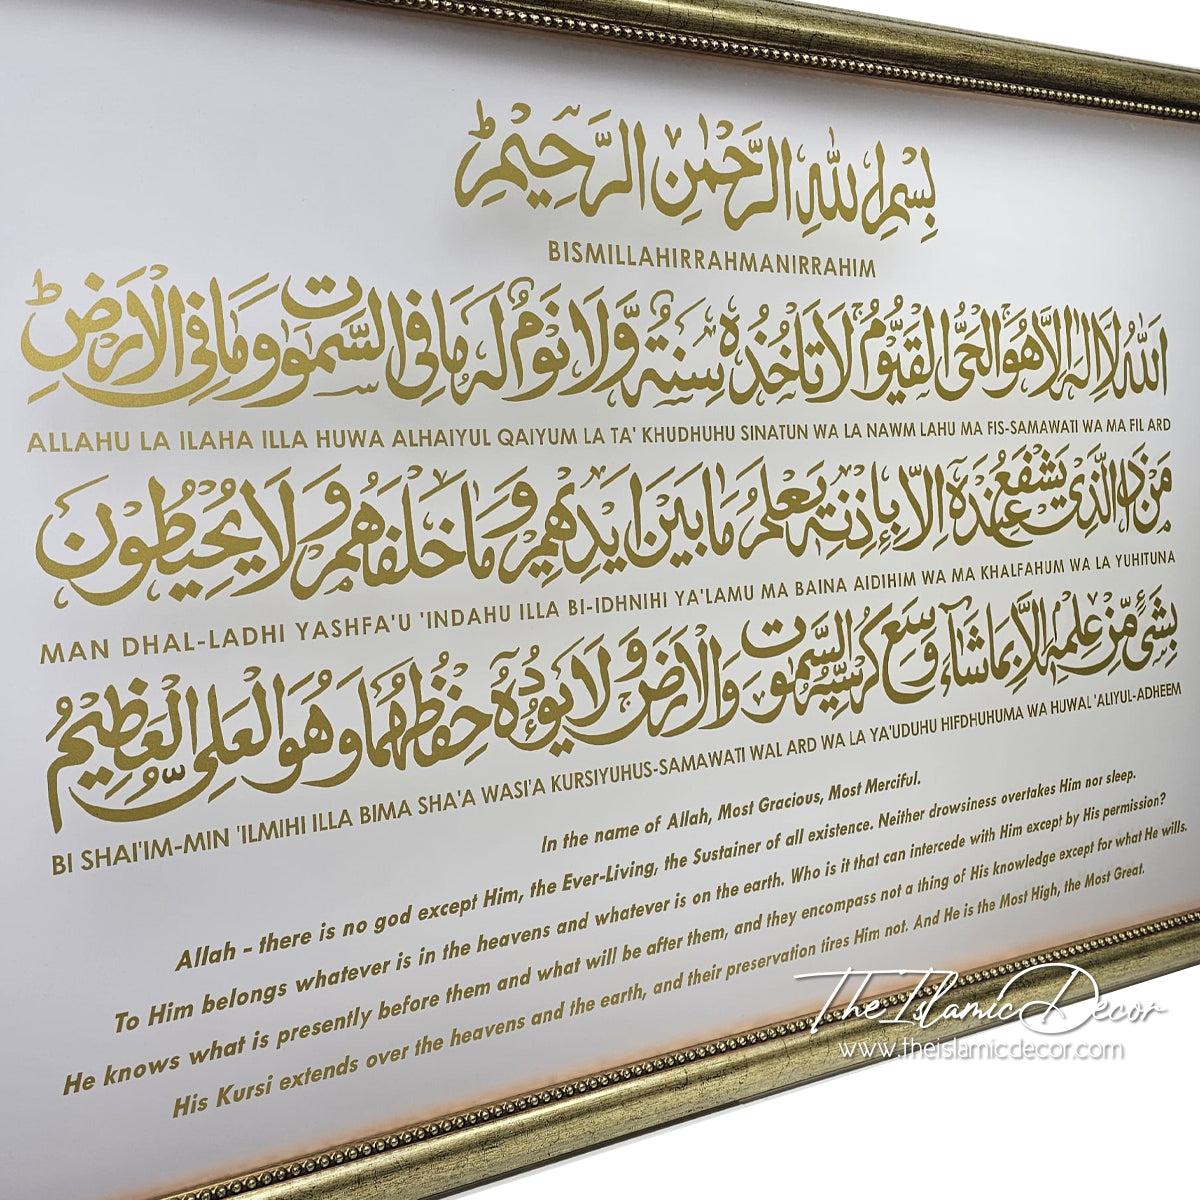 بِسْمِ اللهِ الرَّحْمٰنِ الرَّحِيْمِ
BISMILLAHIRRAHMANIRRAHIM
اَللهُ لَا اِلٰهَ اِلَّا هُوَ الْحَىُّ الْقَيُّوْمُ لَا تَاْخُذُهٗ سِنَةٌ وَّلَا نَوْمٌ لَهٗ مَا فِى السَّمٰوٰتِ وَمَا فِى الْاَرْضِ
ALLAHU LA ILAHA ILLA HUWA ALHAIYUL QAIYUM LA TA' KHUDHUHU SINATUN WA LA NAWM LAHU MA FIS-SAMAWATI WA MA FIL ARD
مَنْ ذَا الَّذِىْ يَشْفَعُ عِنْدَهٗ اِلَّا بِاِذْنِهٖ يَعْلَمُ مَا بَيْنَ اَيْدِيْهِمْ وَمَا خَلْفَهُمْ وَلَا يُحِيْطُوْنَ
MAN DHAL-LADHI YASHFA'U 'INDAHU ILLA BI-IDHNIHI YA'LAMU MA BAINA AIDIHIM WA MA KHALFAHUM WA LA YUHITUNA
بِشَىْءٍ مِّنْ عِلْمِهٖ اِلَّا بِمَا شَآءَ وَسِعَ كُرْسِيُّهُ السَّمٰوٰتِ وَالْاَرْضَ وَلَا يَـُٔوْدُهٗ حِفْظُهُمَا وَهُوَ الْعَلِىُّ الْعَظِيْمُ
BI SHAI'IM-MIN 'ILMIHI ILLA BIMA SHA'A WASI'A KURSIYUHUS-SAMAWATI WAL ARD WA LA YA'UDUHU HIFDHUHUMA WA HUWAL 'ALIYUL-ADHEEM
In the name of Allah, Most Gracious, Most Merciful.
Allah - there is no god except Him, the Ever-Living, the Sustainer of all existence. Neither drowsiness overtakes Him nor sleep.
To Him belongs whatever is in the heavens and whatever is on the earth. Who is it that can intercede with Him except by His permission?
He knows what is presently before them and what will be after them, and they encompass not a thing of His knowledge except for what He wills.
His Kursi extends over the heavens and the earth, and their preservation tires Him not. And He is the Most High, the Most Great.
The Islamic Decor
www.theislamicdecor.com